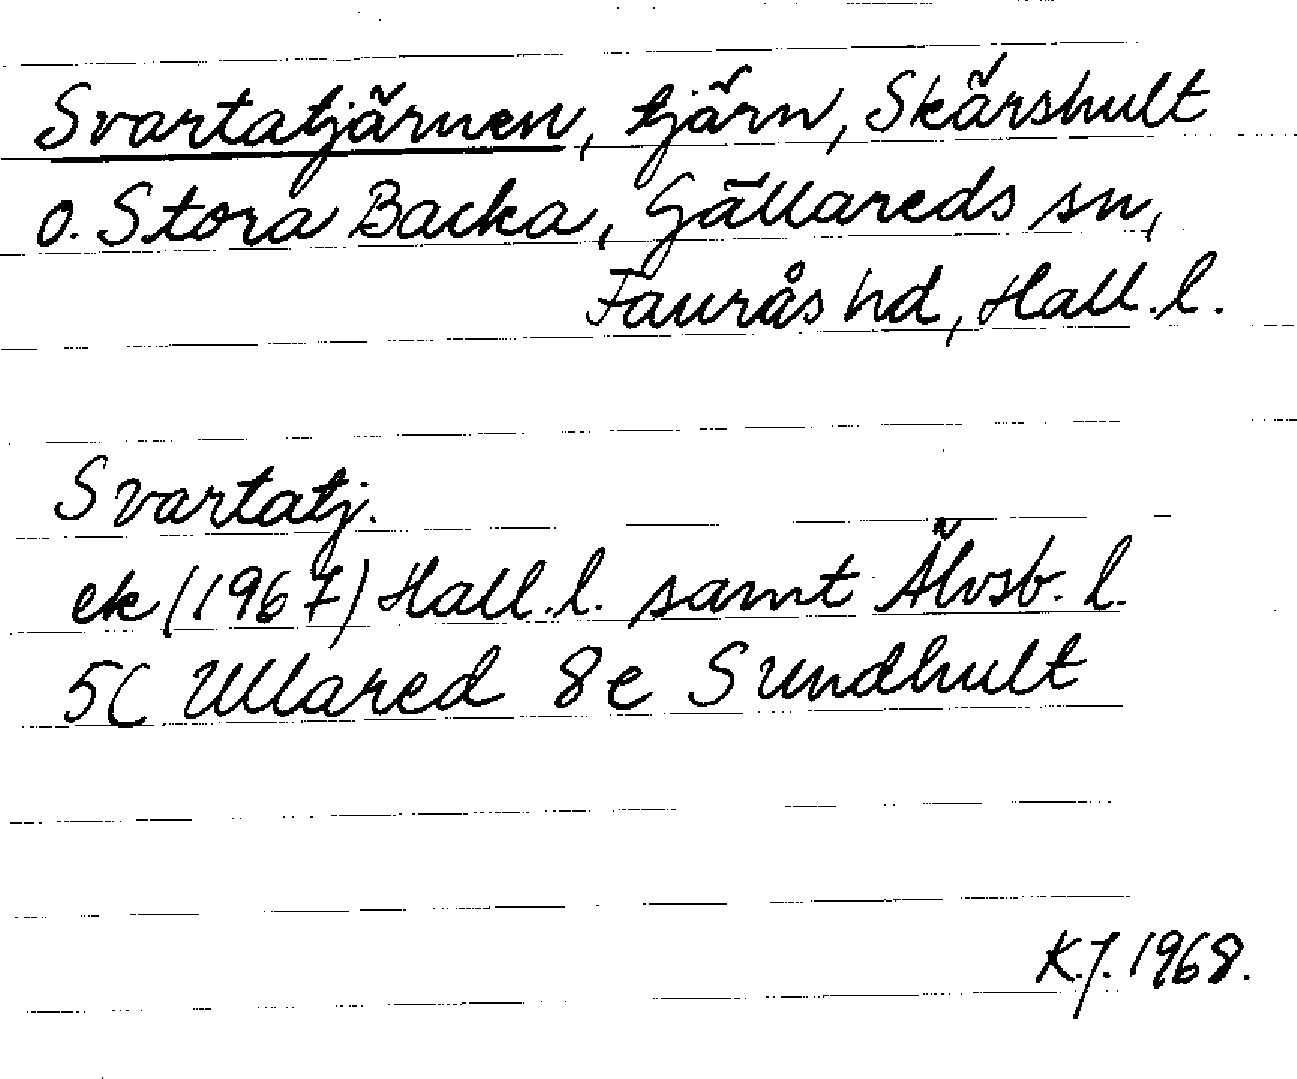 Svartatjärnen, tjärn, Skärshult
o. Stora Backa, Gällareds sn,
Faurås hd, Hall. l.
Svartatj.
ek (1967) Hall. l. samt Älvsb. l.
5C Ullared 8e Sundhult
K.J. 1968.